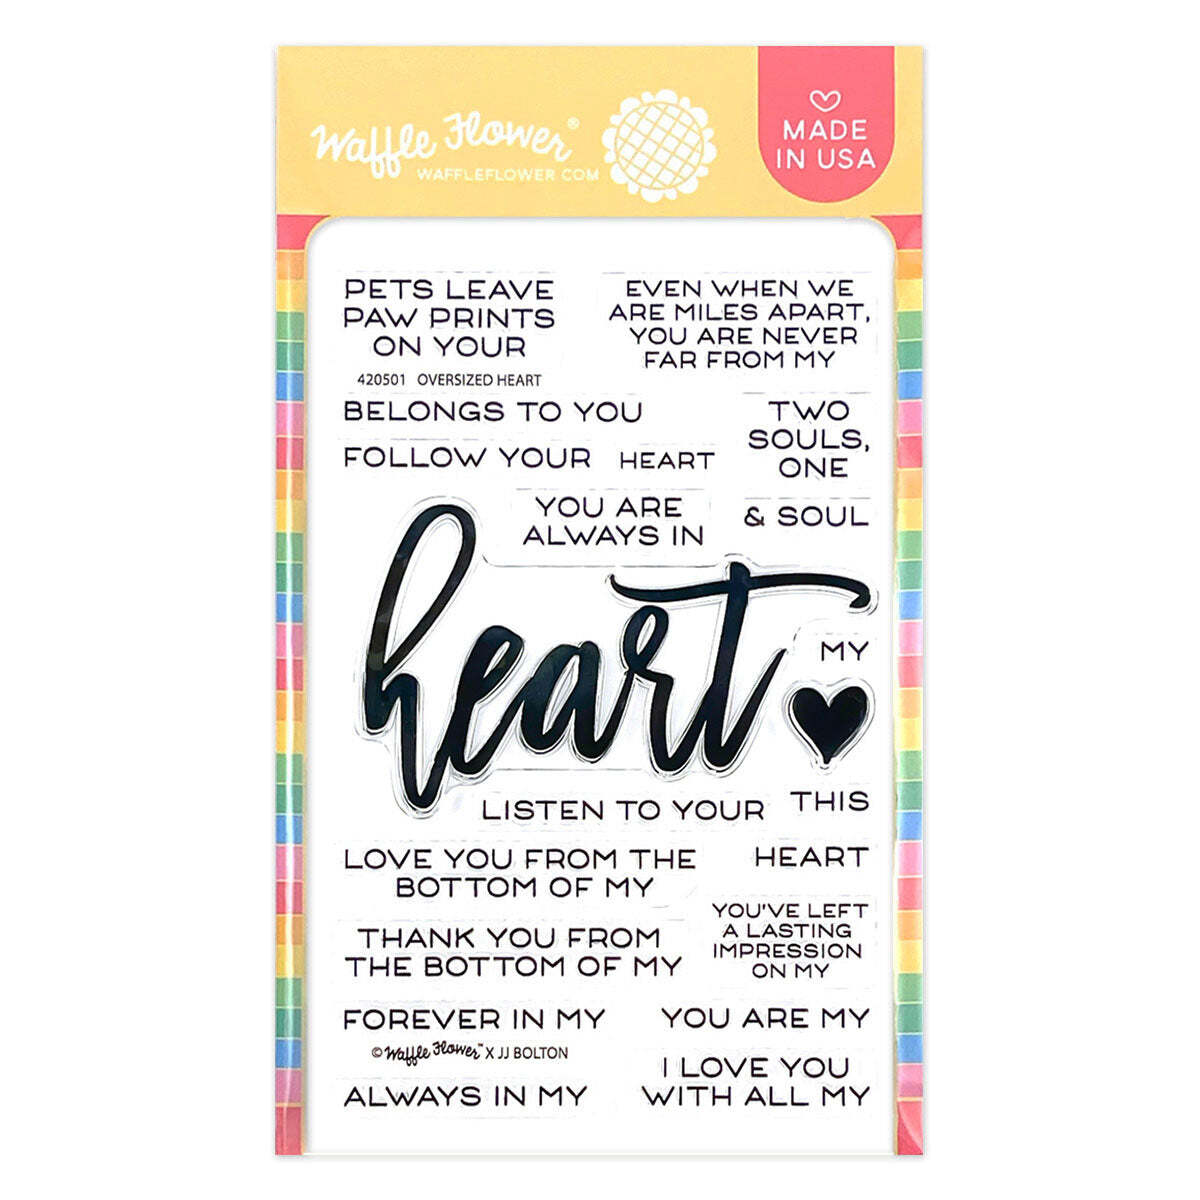 Waffle Flower®
WAFFLEFLOWER.COM
MADE
IN USA
PETS LEAVE
PAW PRINTS
ON YOUR
EVEN WHEN WE
ARE MILES APART,
YOU ARE NEVER
FAR FROM MY
420501 OVERSIZED HEART
BELONGS TO YOU
TWO
SOULS,
ONE
FOLLOW YOUR
HEART
YOU ARE
ALWAYS IN
& SOUL
heart
MY
THIS
LISTEN TO YOUR
LOVE YOU FROM THE
BOTTOM OF MY
HEART
YOU'VE LEFT
A LASTING
IMPRESSION
ON MY
THANK YOU FROM
THE BOTTOM OF MY
FOREVER IN MY
YOU ARE MY
© Waffle Flower™ X JJ BOLTON
I LOVE YOU
WITH ALL MY
ALWAYS IN MY